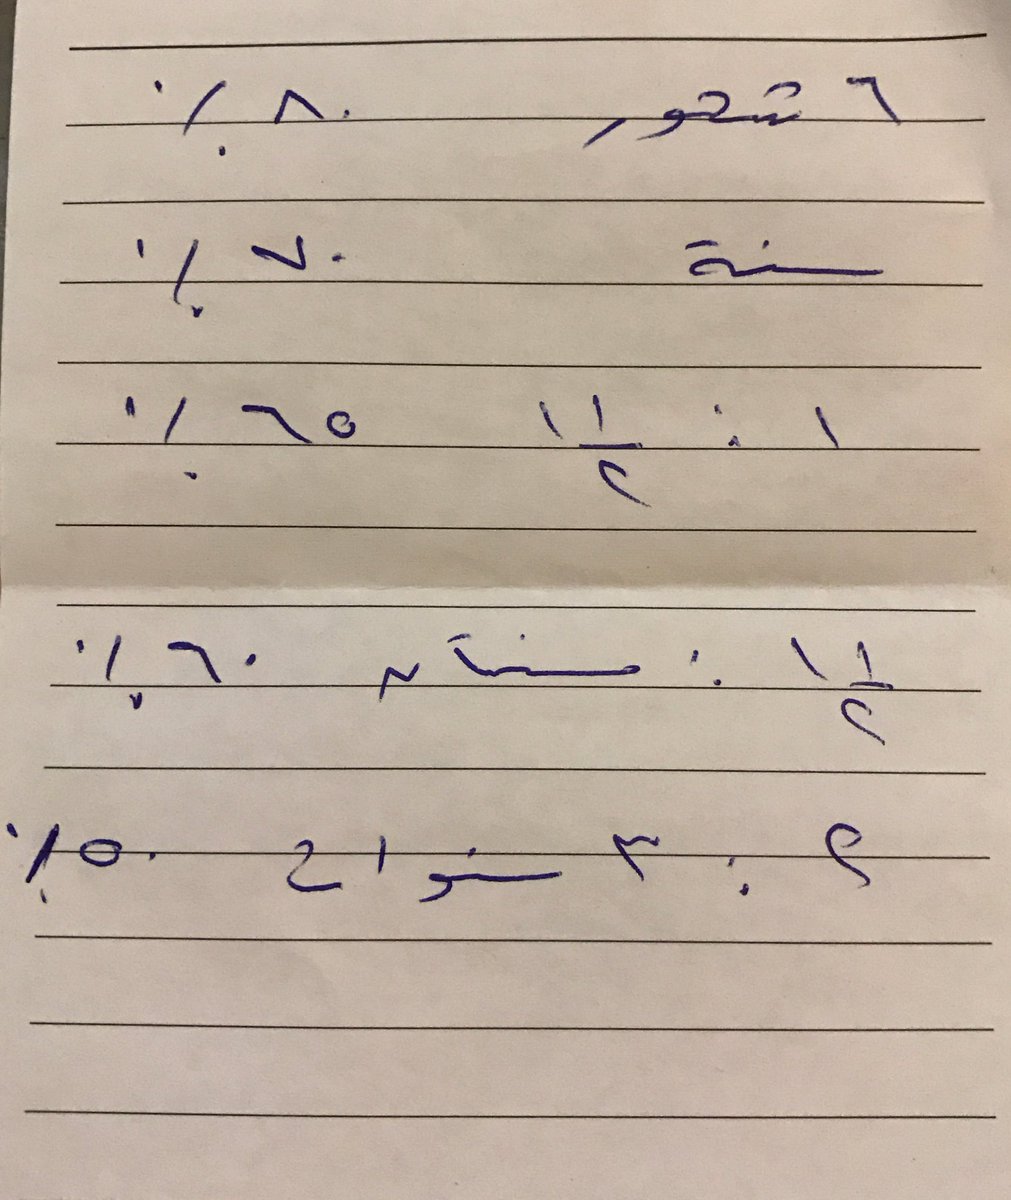 ٦ شهور ٨٠ ٪
سنة ٧٠ ٪
١ : ١ ١/٢ ٦٥ ٪
١ ١/٢ : سنتان ٦٠ ٪
٢ : ٣ سنوات ٥٠ ٪